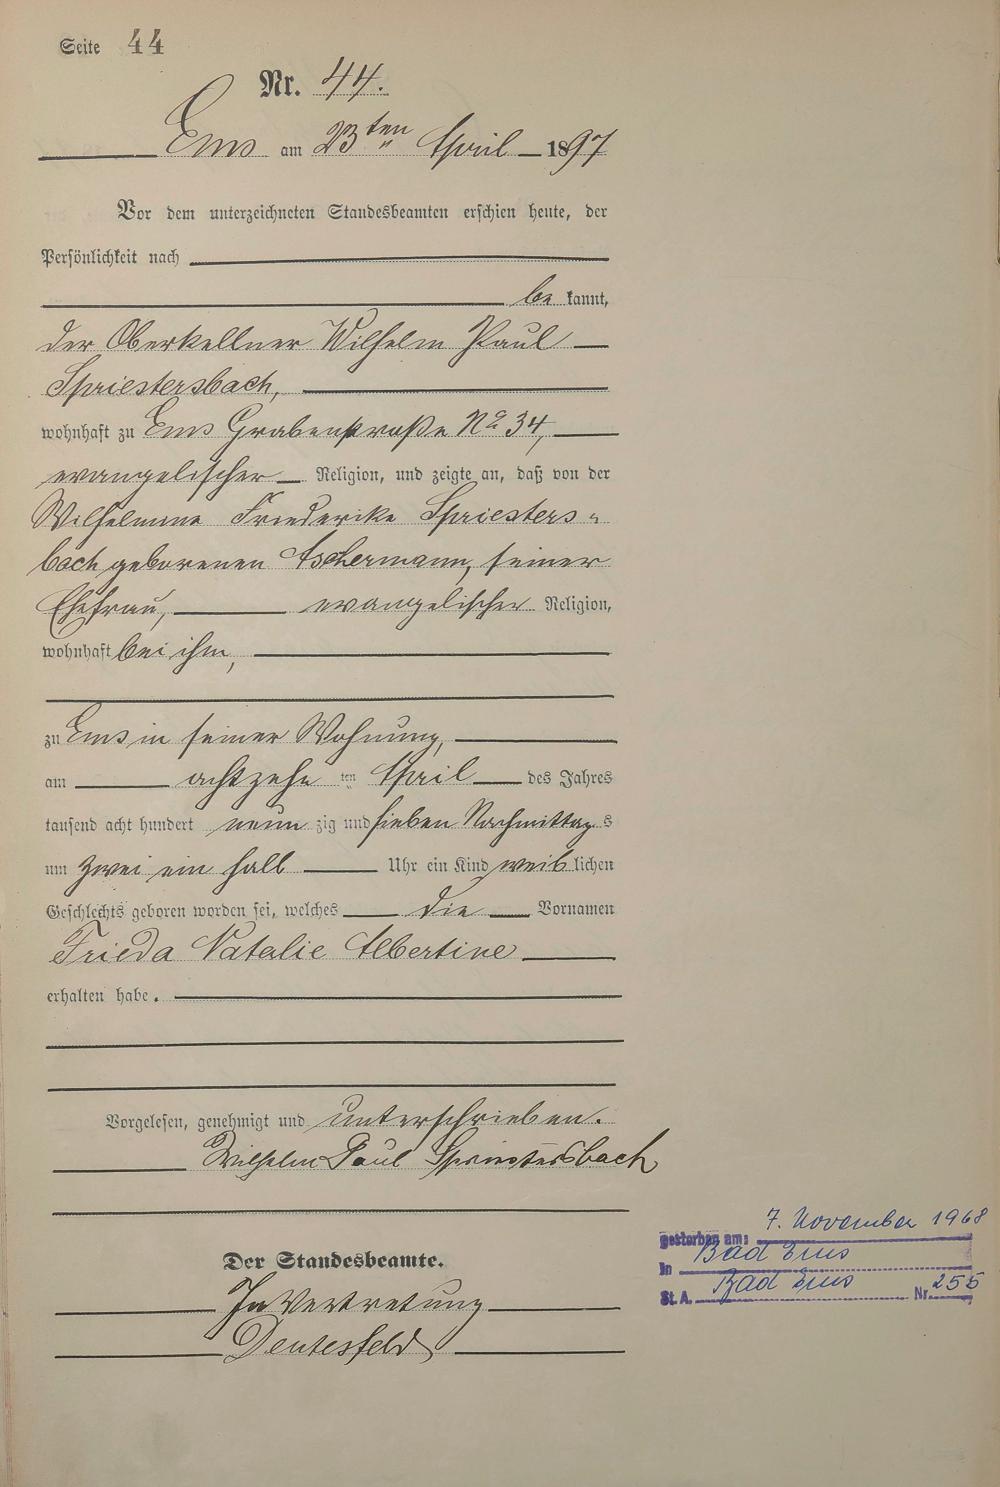 Seite 44
Nr. 44.
Ems am 23ten April 1897
Vor dem unterzeichneten Standesbeamten erschien heute, der
Persönlichkeit nach
be kannt,
der Oberkellner Wilhelm Paul
Spriestersbach,
wohnhaft zu Ems Grabenstraße No 34,
evangelischer Religion, und zeigte an, daß von der
Wilhelmine Friederike Spriesters-
bach geborenen Aschermann, seiner
Ehefrau, evangelischer Religion,
wohnhaft bei ihm,
zu Ems in seiner Wohnung,
am achtzehn ten April des Jahres
tausend acht hundert neun zig und sieben Nachmittag s
um zwei ein halb Uhr ein Kind weib lichen
Geschlechts geboren worden sei, welches die Vornamen
Frieda Natalie Albertine
erhalten habe.
Vorgelesen, genehmigt und unterschrieben.
Wilhelm Paul Spriestersbach
Der Standesbeamte.
In Vertretung
Deutesfeld
gestorben am: 7. November 1968
In Bad Ems
St. A. Bad Ems Nr. 255